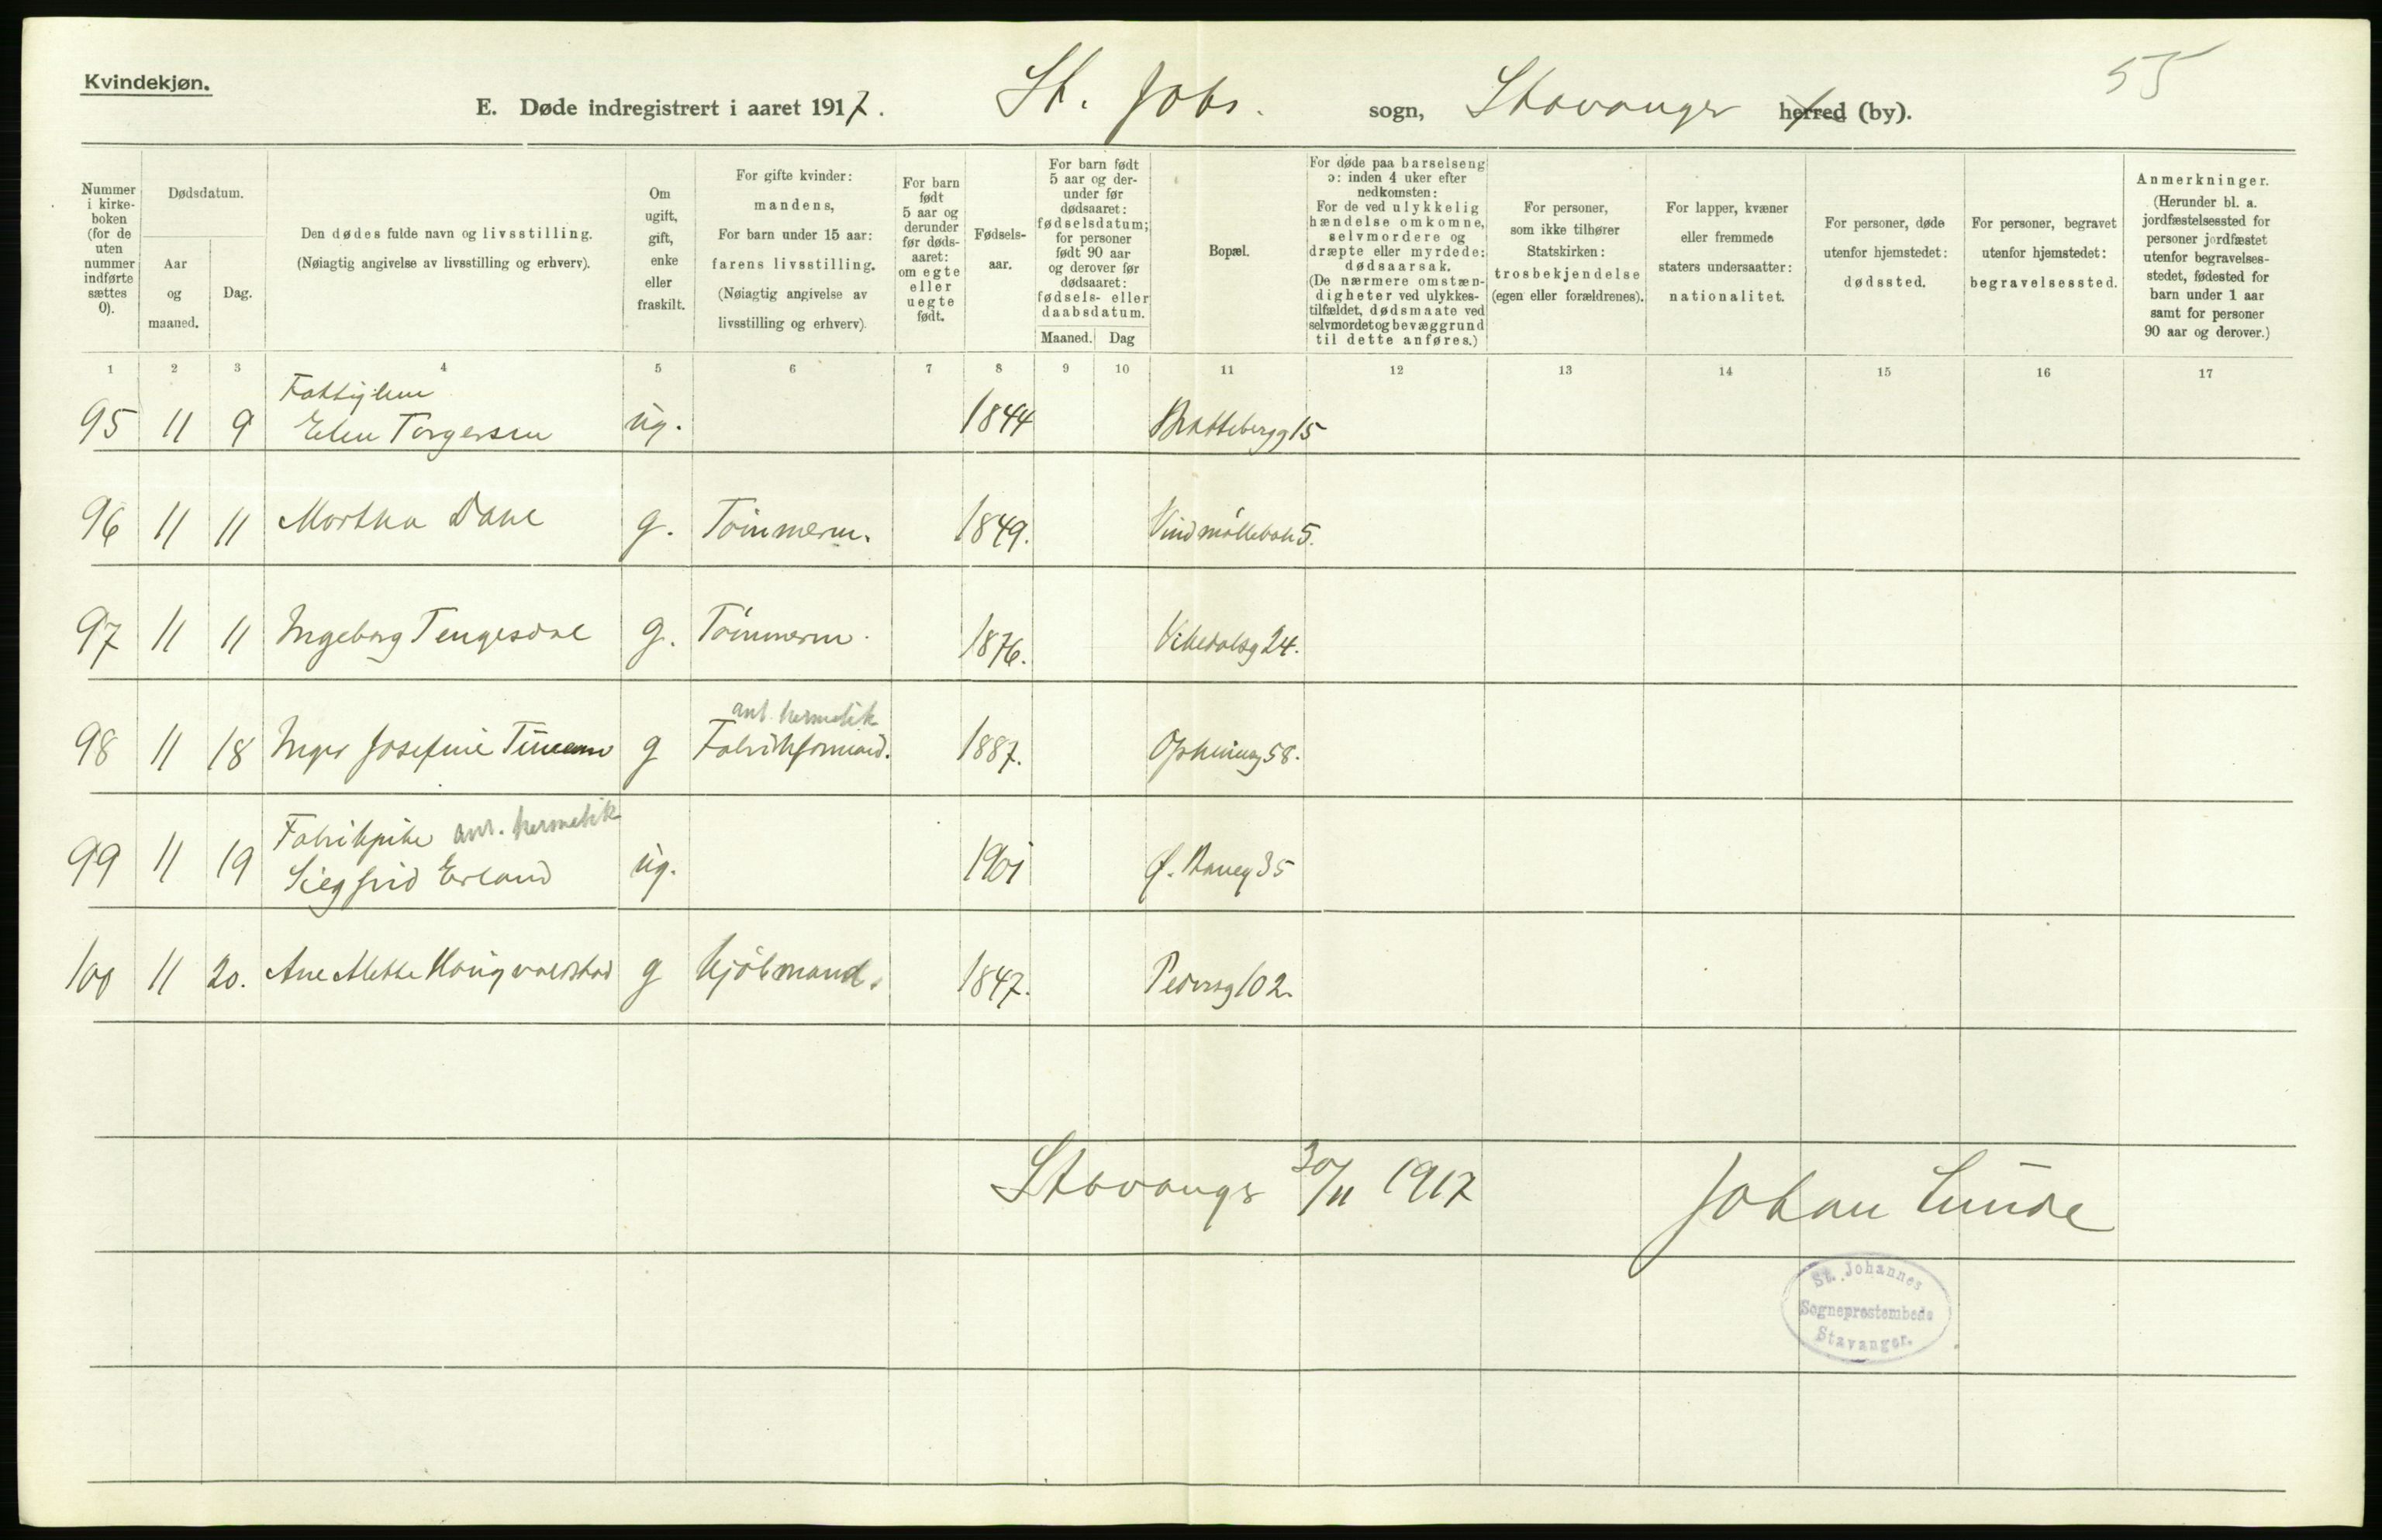 Kvindekjøn.
55
E. Døde indregistrert i aaret 1917. St. Johs. sogn, Stavanger herred (by).
Nummer i kirkeboken (for de uten nummer indførte sættes 0).
Dødsdatum.
Aar og maaned.
Dag.
Den dødes fulde navn og livsstilling.
(Nøiagtig angivelse av livsstilling og erhverv).
Om ugift, gift, enke eller fraskilt.
For gifte kvinder:
mandens,
For barn under 15 aar:
farens livsstilling.
(Nøiagtig angivelse av
livsstilling og erhverv).
For barn født 5 aar og derunder før dødsaaret: om egte eller uegte født.
Fødselsaar.
For barn født 5 aar og derunder før dødsaaret: fødselsdatum; for personer født 90 aar og derover før dødsaaret: fødsels- eller daabsdatum.
Maaned. Dag
Bopæl.
For døde paa barselseng ɔ: inden 4 uker efter nedkomsten:
For de ved ulykkelig hændelse omkomne, selvmordere og dræpte eller myrdede: dødsaarsak.
(De nærmere omstændigheter ved ulykkestilfældet, dødsmaate ved selvmordet og bevæggrund til dette anføres.)
For personer, som ikke tilhører Statskirken: trosbekjendelse (egen eller forældrenes).
For lapper, kvæner eller fremmede staters undersaatter: nationalitet.
For personer, døde utenfor hjemstedet: dødssted.
For personer, begravet utenfor hjemstedet: begravelsessted.
Anmerkninger.
(Herunder bl. a. jordfæstelsessted for personer jordfæstet utenfor begravelsesstedet, fødested for barn under 1 aar samt for personer 90 aar og derover.)
1 2 3 4 5 6 7 8 9 10 11 12 13 14 15 16 17
Fattiglem
95 11 9 Elen Torgersen ug. 1844 Brattebergg 15
96 11 11 Martha Dahl g. Tømmerm. 1849. Vindmøllebak 5.
97 11 11 Ingeborg Tengesdal g. Tømmerm. 1876. Vikedalsg 24.
arb. hermetik
98 11 18 Inger Josefine g Fabrikformand. 1887. 58.
Fabrikpike arb. hermetik
99 11 19 Siegfrid Erland ug. 1901 Ø. Baneg 35
100 11 20. Ane Mette g Kjøbmand. 1847. Pedersg 102.
Stavanger 30/11 1917 Johan Lunde
St. Johannes
Sogneprestembede
Stavanger.